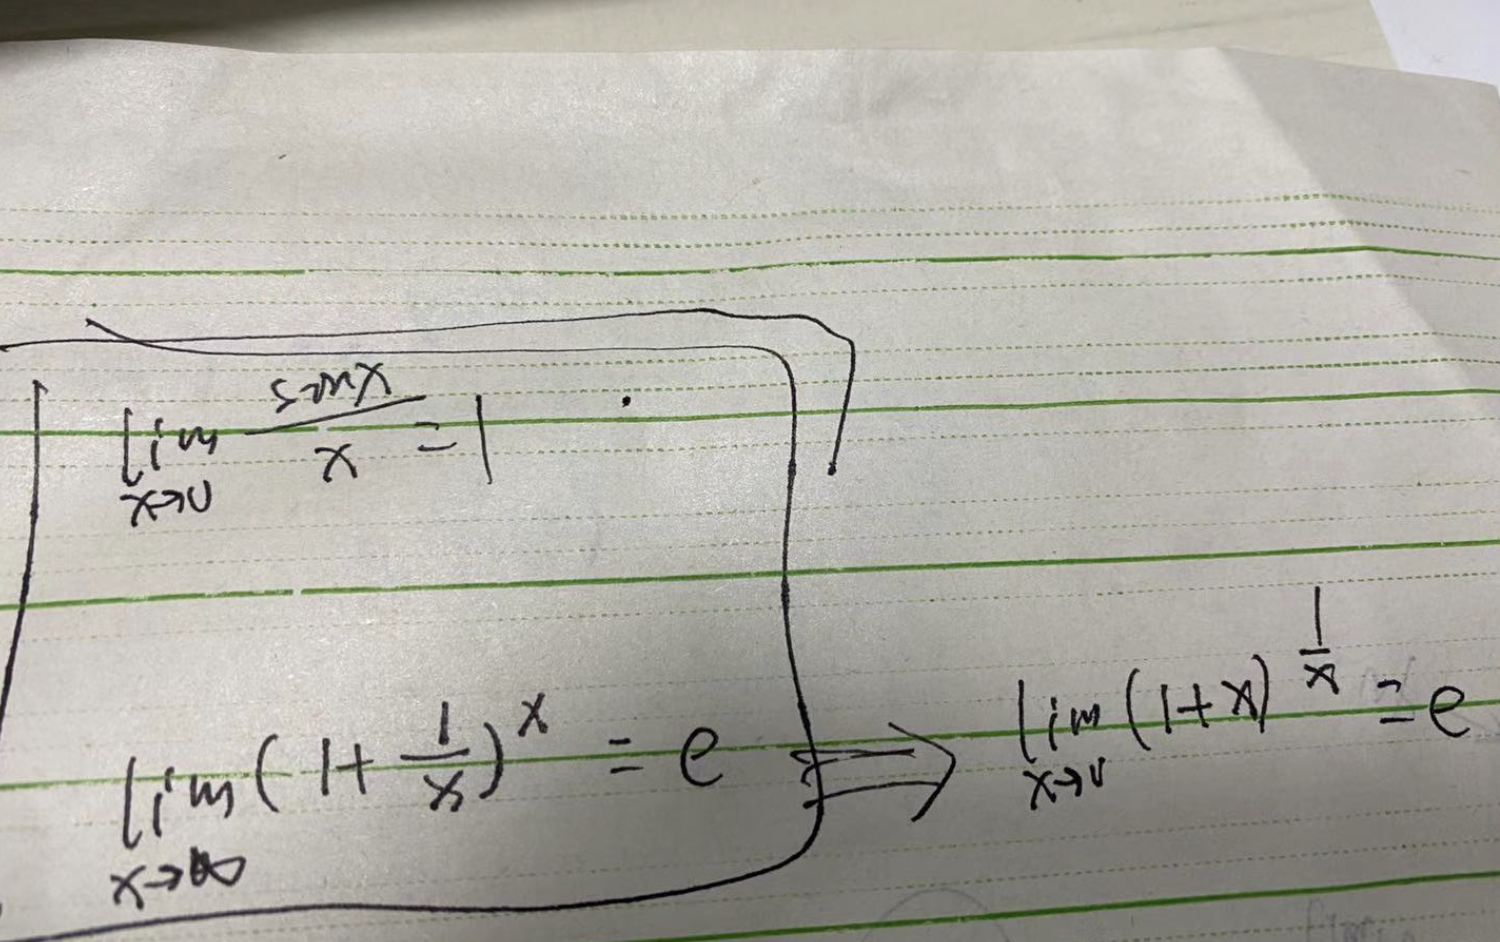 lim x→0 sinx/x = 1
lim x→∞ (1+1/x)^x = e ⇒ lim x→0 (1+x)^(1/x) = e